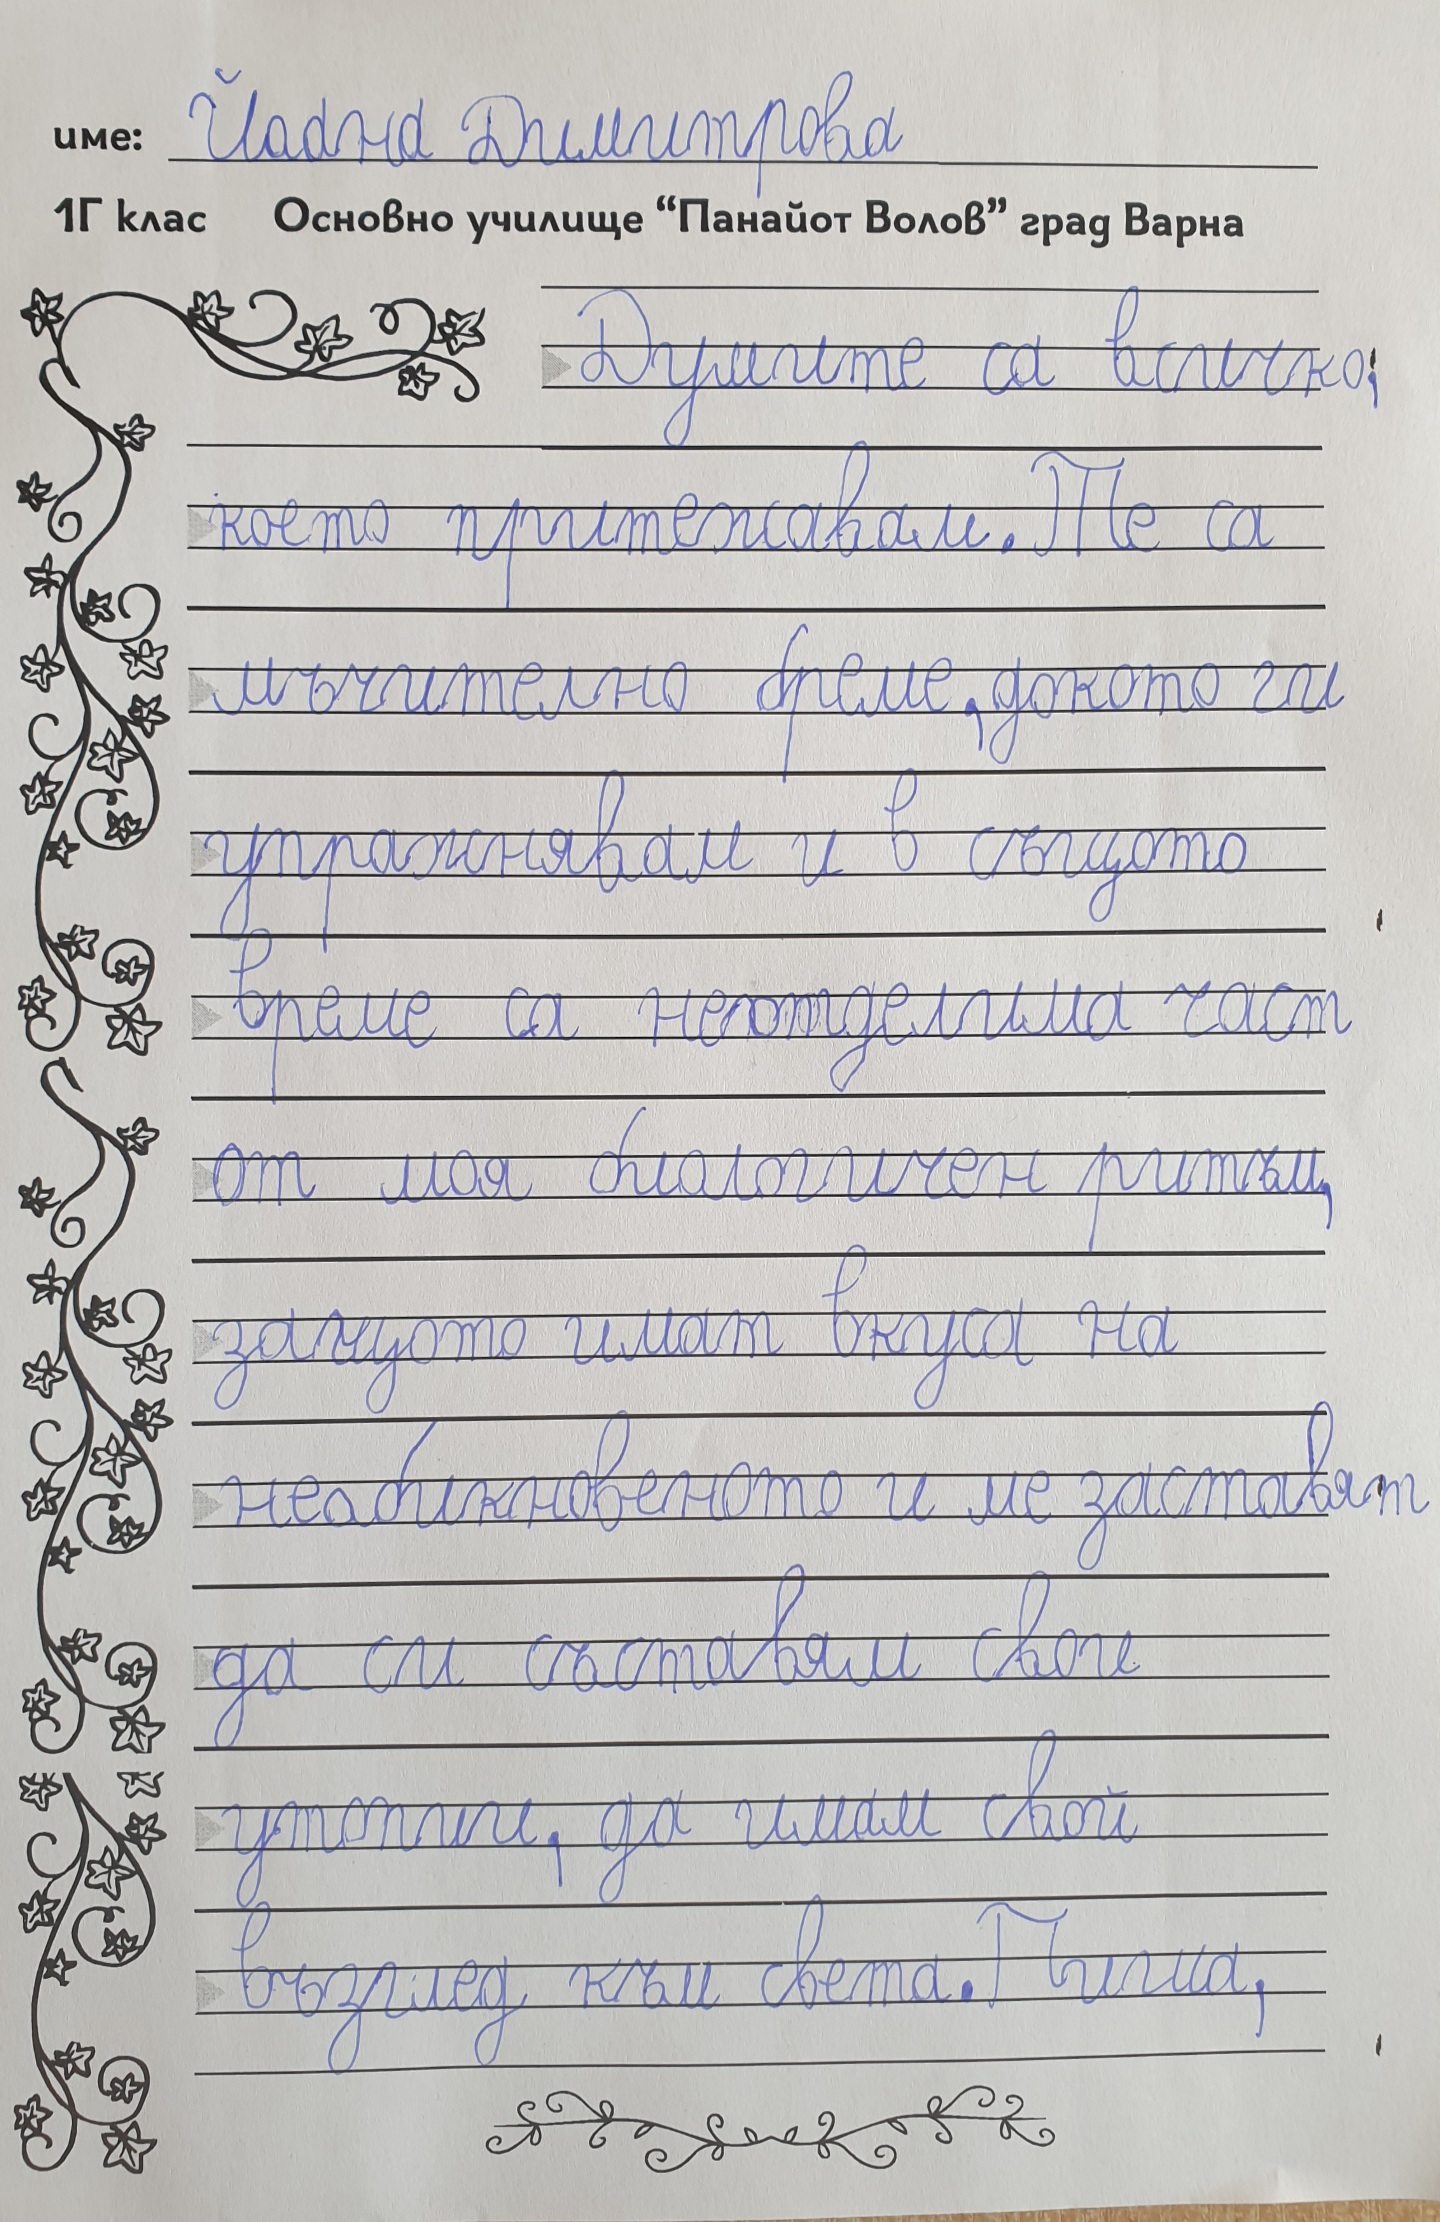 име: Йоана Димитрова
1Г клас Основно училище “Панайот Волов” град Варна
Думите са всичко,
което притежавам. Те са
мъчително бреме, докото ги
упражнявам и в същото
време са неотделима част
от моя биологичен ритъм,
защото имат вкуса на
необикновеното и ме заставят
да си съставям свои
утопии, да имам свой
възглед към света. Пиша,